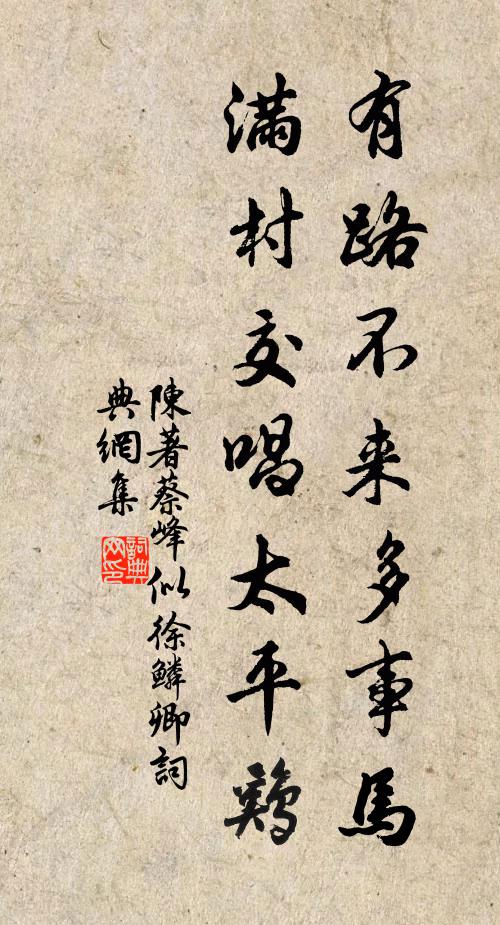 有路不来多事馬
滿村交唱太平鷄
陳著蔡峰似徐鱗卿詞
典網集
詞典网印